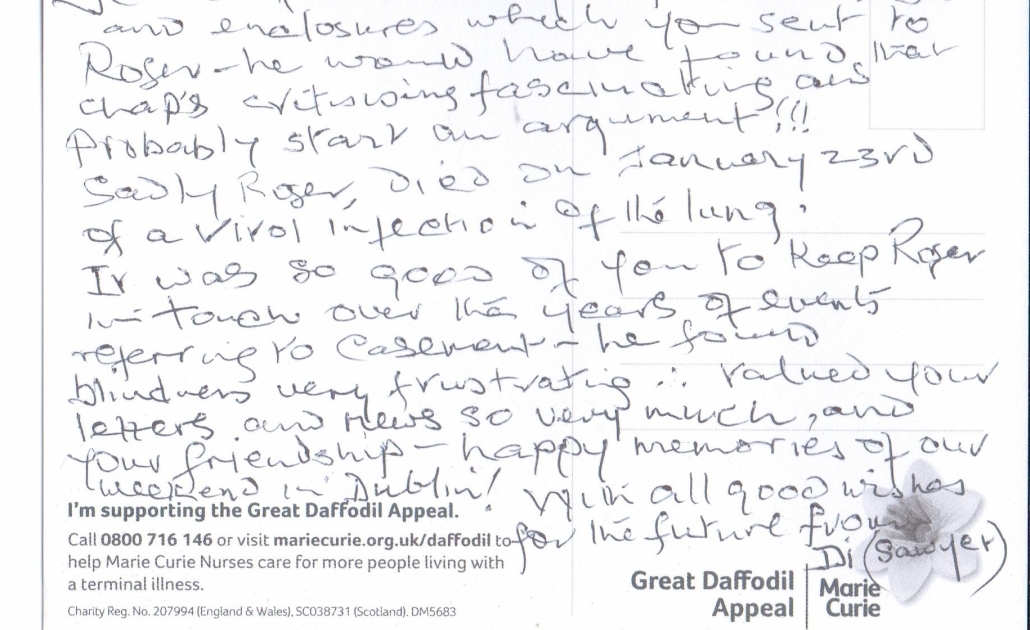 and enclosures which you sent to
Roger - he would have found that
chap's critisising fascinating and
Probably start an argument!!!
Sadly Roger, died on January 23rd
of a Virol infection of the lung.
It was so good of you to keep Roger
in touch over the years of events
referring to Casement - he found
blindness very frustrating ∴ valued your
letters and news so very much, and
your friendship - happy memories of our
weekend in Dublin! With all good wishes
for the future from
Di (Sawyer)
I'm supporting the Great Daffodil Appeal.
Call 0800 716 146 or visit mariecurie.org.uk/daffodil to
help Marie Curie Nurses care for more people living with
a terminal illness.
Charity Reg. No. 207994 (England & Wales), SC038731 (Scotland). DM5683
Great Daffodil
Appeal
Marie
Curie